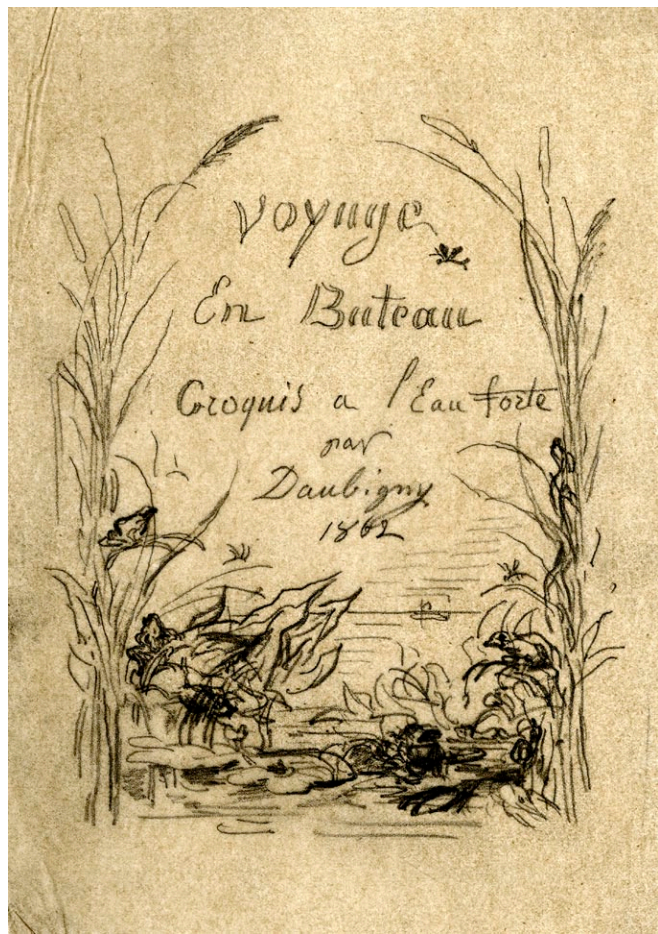 Voyage
En Bateau
Croquis a l'Eau forte
par
Daubigny
1862